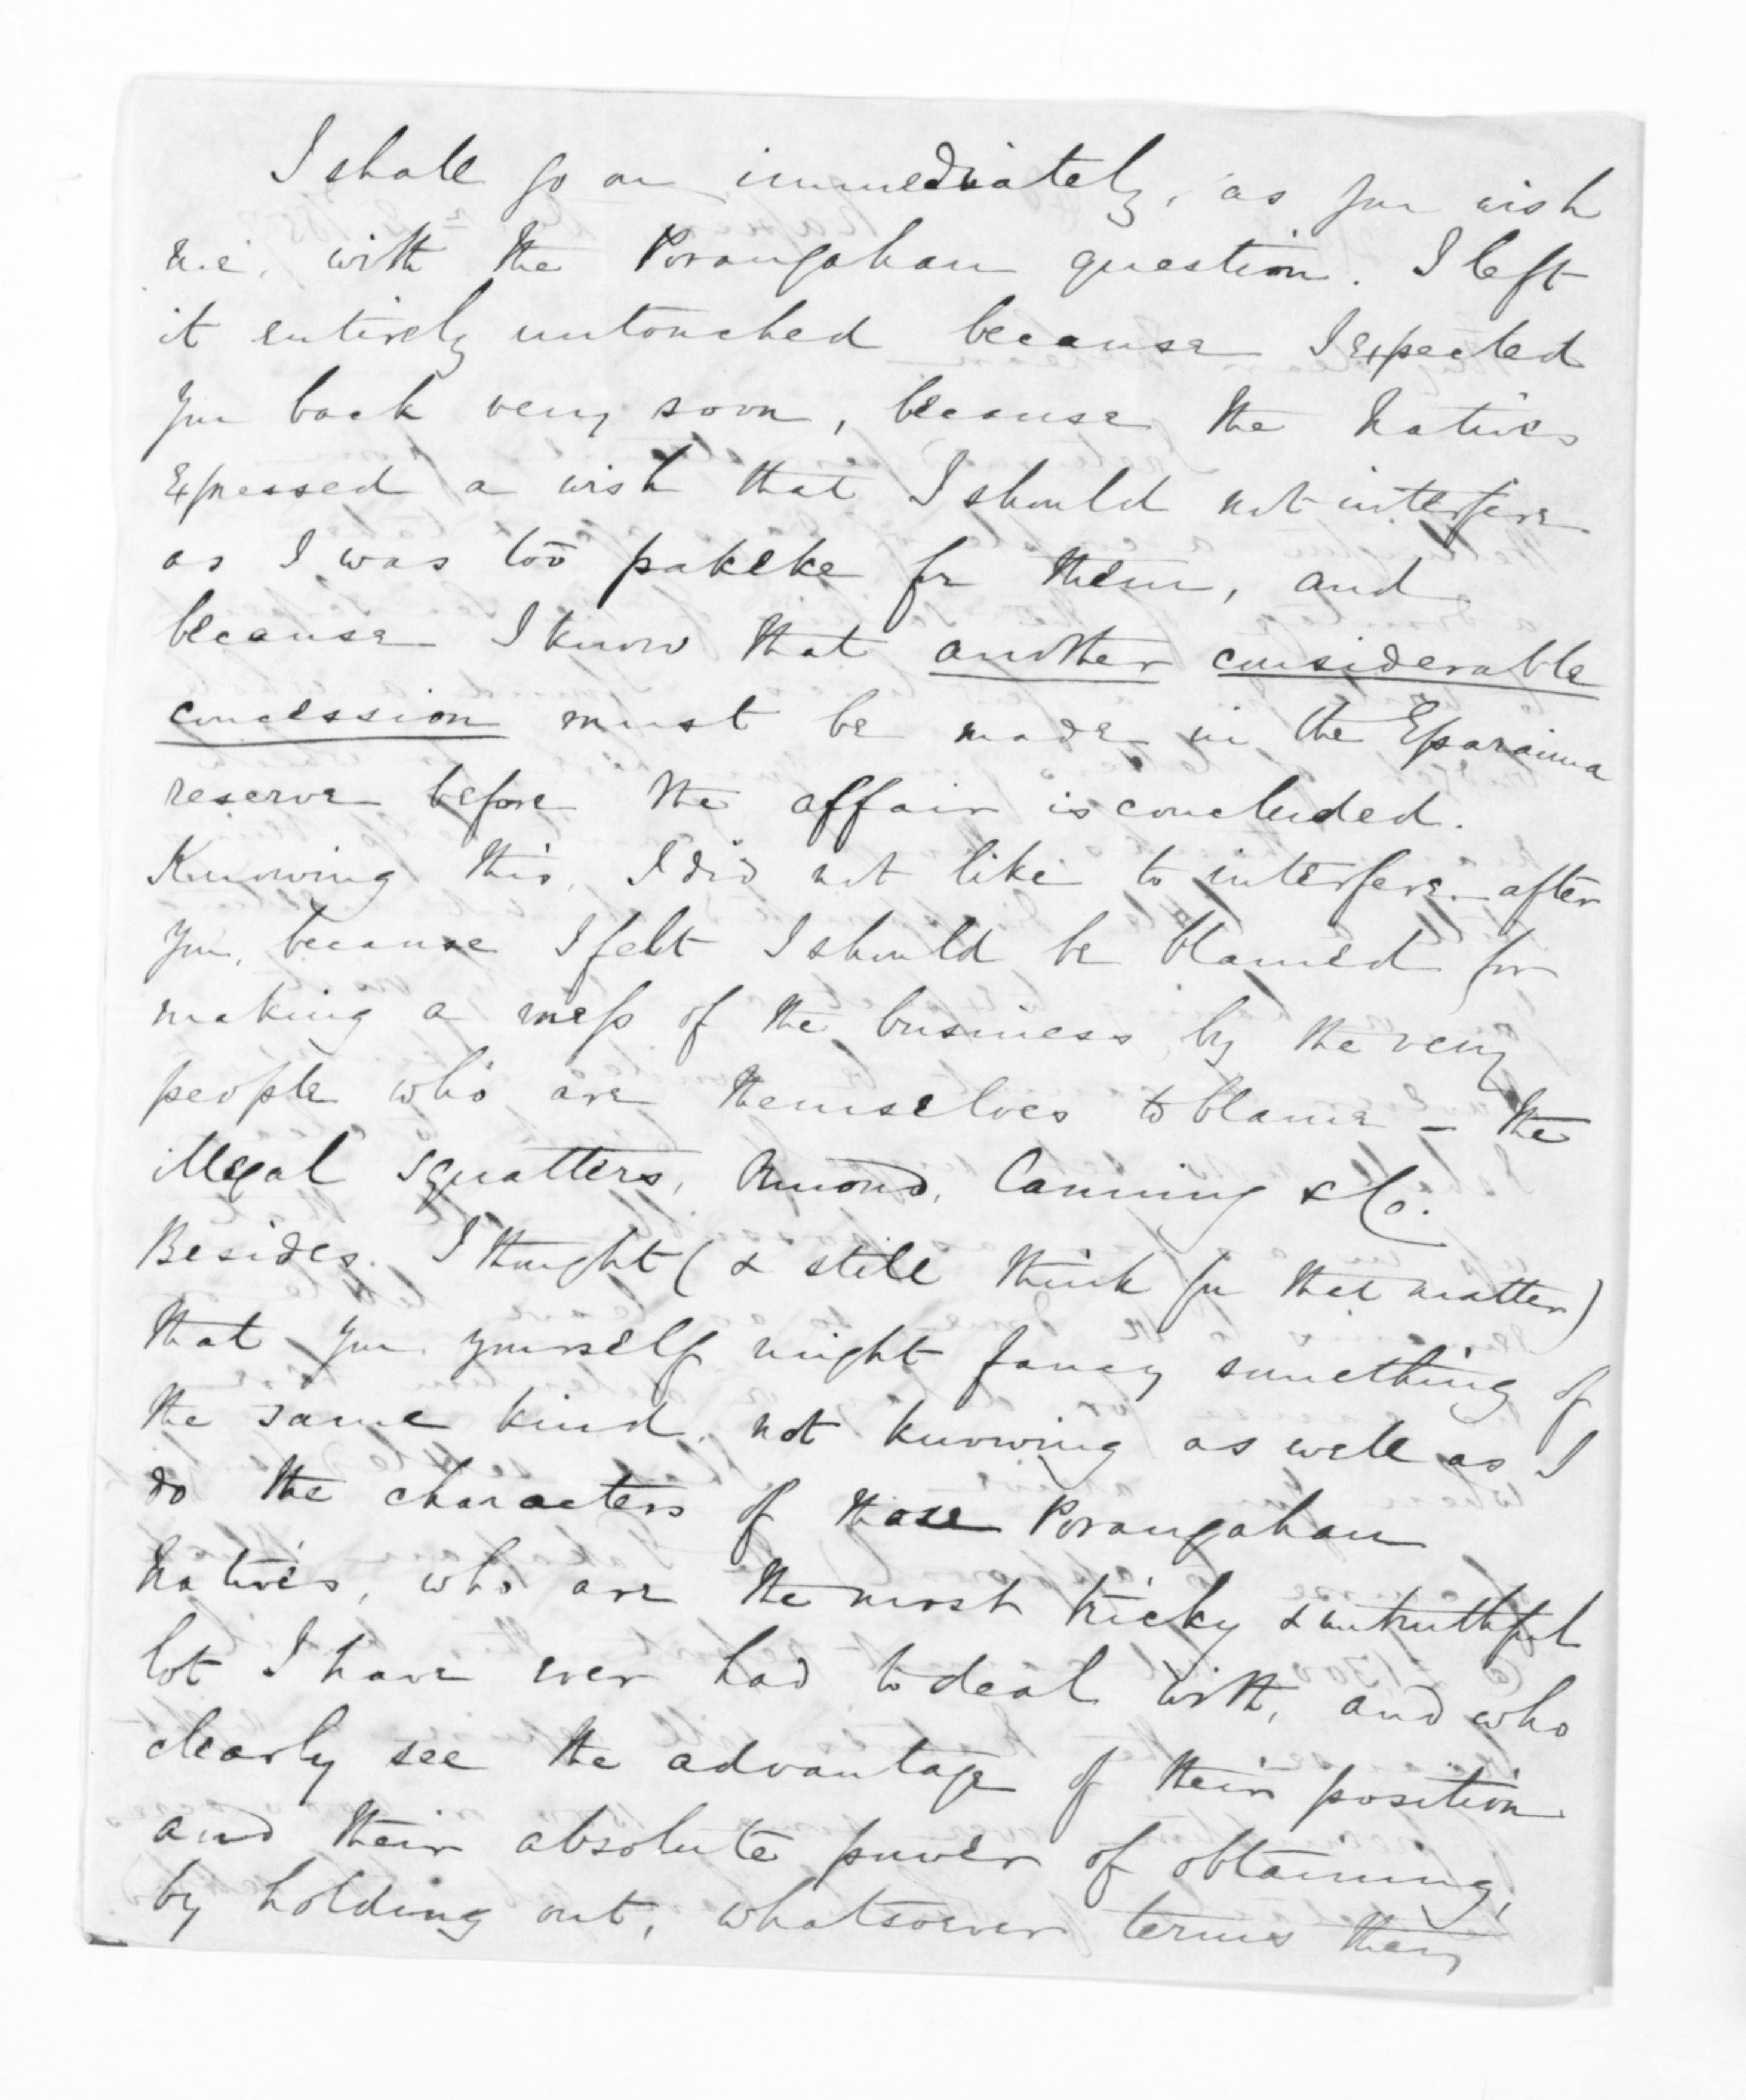 I shall go on immediately, as you wish
me, with the Porangahau question. I left
it entirely untouched because I expected
you back very soon, because the Natives
expressed a wish that I should not interfere
as I was too pakeke for them, and
because I know that another considerable
concession must be made in the Eparaima
reserve before the affair is concluded.
Knowing this, I did not like to interfere after
you, because I felt I should be blamed for
making a mess of the business by the very
people who are themselves to blame – the
illegal squatters, Ormond, Canning & Co.
Besides, I thought (& still think for that matter)
that you yourself might fancy something of
the same kind, not knowing as well as I
do the characters of those Porangahau
Natives, who are the most tricky & untruthful
lot I have ever had to deal with, and who
clearly see the advantage of their position
and their absolute power of obtaining,
by holding out, whatsoever terms they